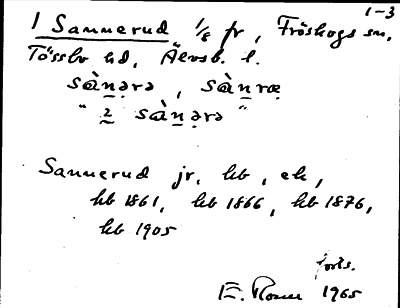 1-3
1 Sannerud 1/8 fr, Fröskogs sn,
Tössbo hd, Älvsb. l.
sànərə, sànræ
" 2 sànərə "
Sannerud jr, hb, ek,
hb 1861, hb 1866, hb 1876,
hb 1905
forts.
E. Rosen 1965